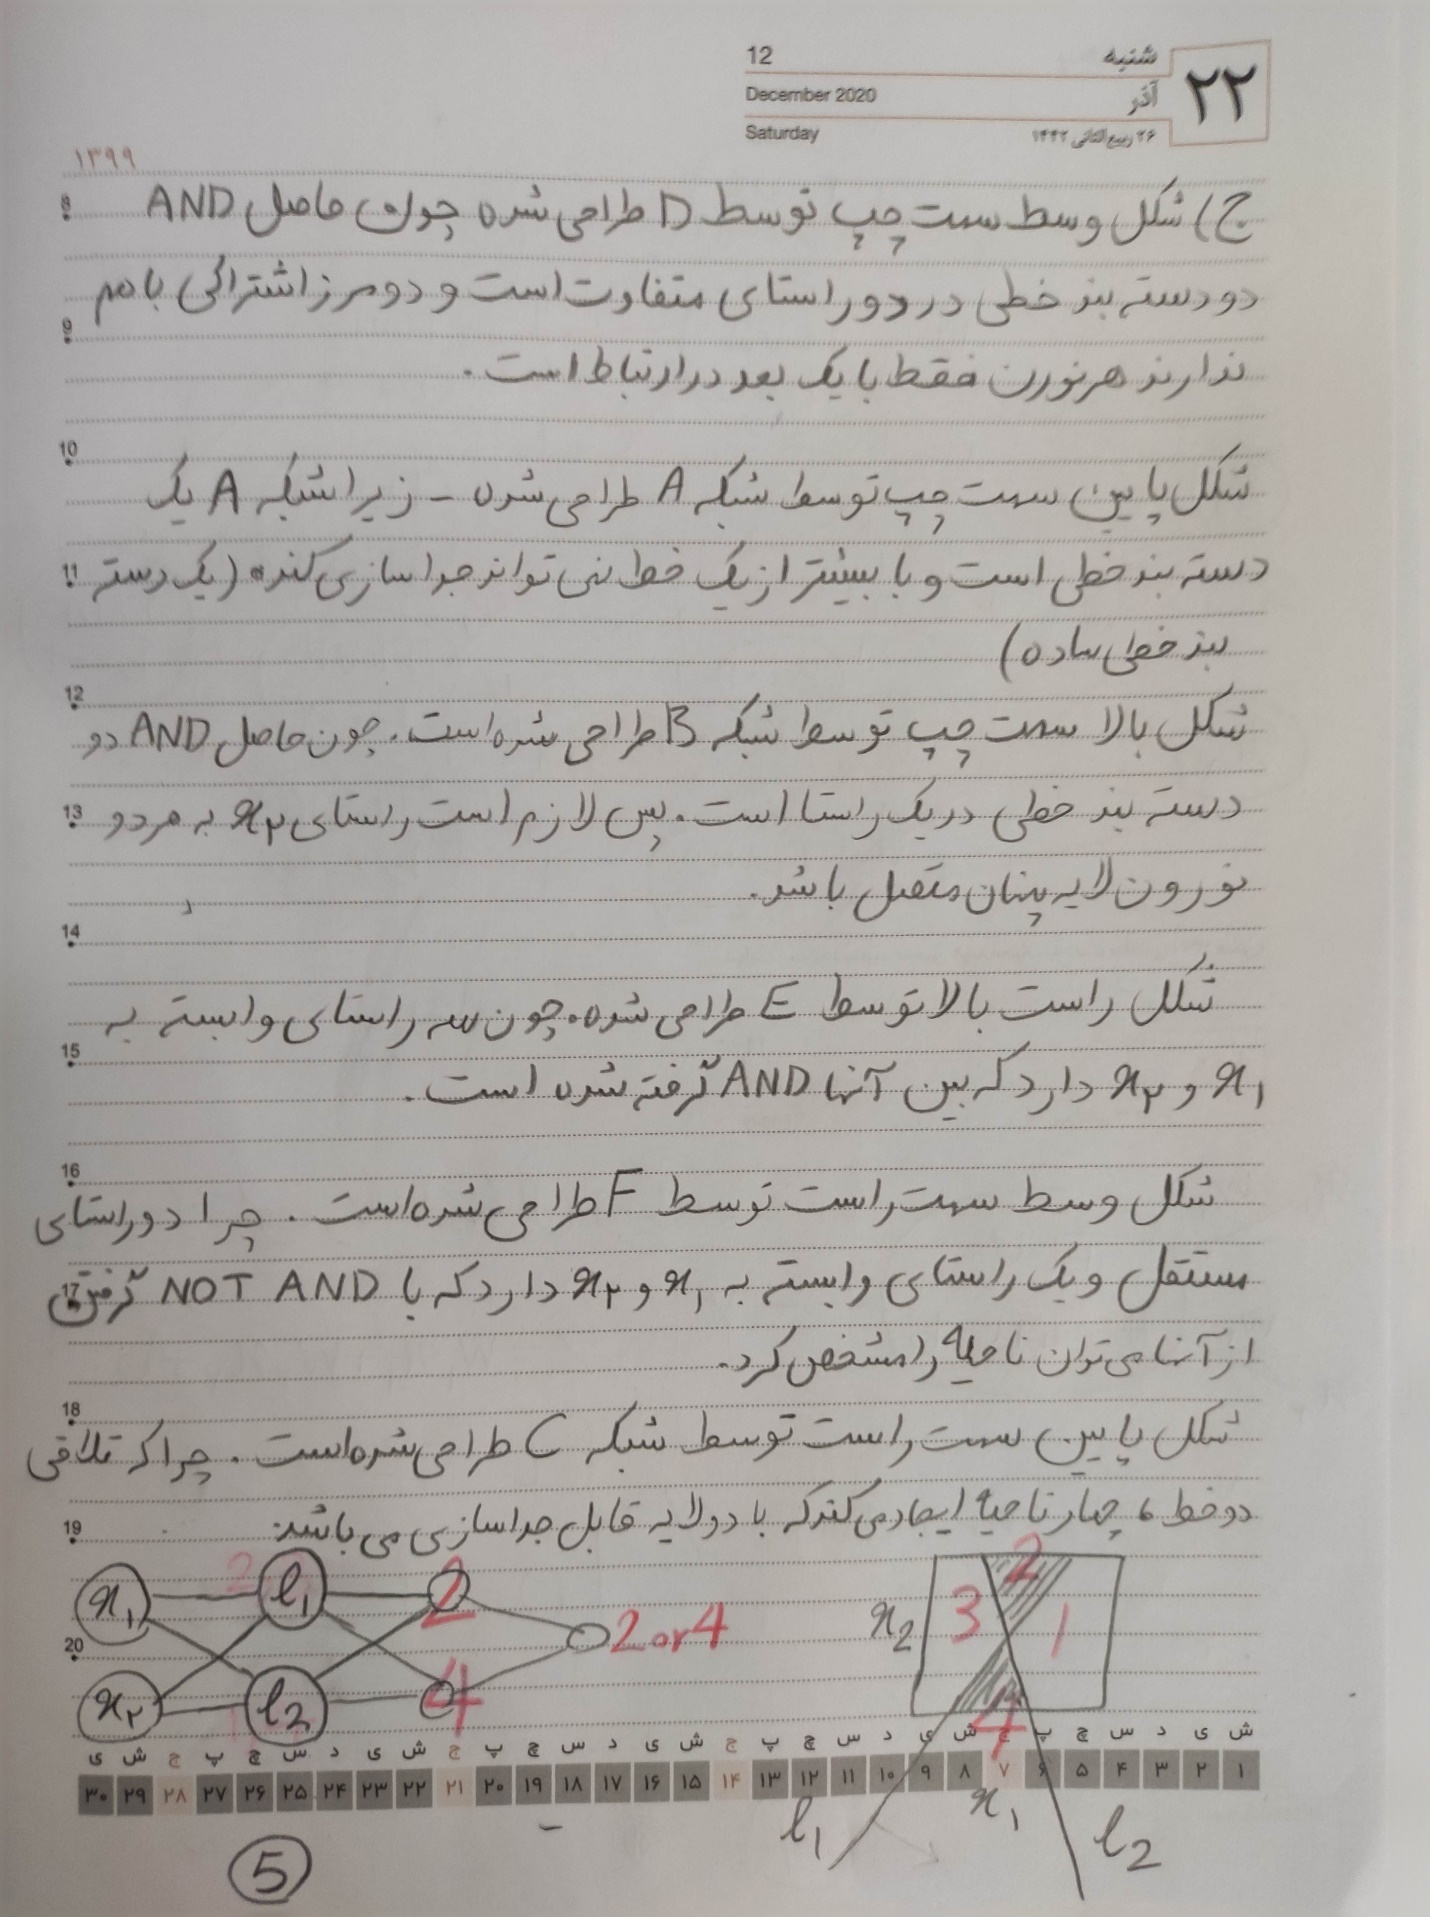 شنبه
12
۲۲
آذر
December 2020
۲۶ ربیع‌الثانی ۱۴۴۲
Saturday
۱۳۹۹
8
ج) شکل وسط سمت چپ توسط D طراحی شده چون حاصل AND
دو دسته بند خطی در دو راستای متفاوت است و دو مرز اشتراکی با هم
9
ندارند هر نورن فقط با یک بعد در ارتباط است.
10
شکل پایین سمت چپ توسط شبکه A طراحی شده - زیرا شبکه A یک
11
دسته بند خطی است و با بیشتر از یک خط نمی تواند جدا سازی کنده (یک دسته
بند خطی ساده)
12
شکل بالا سمت چپ توسط شبکه B طراحی شده است. چون حاصل AND دو
13
دسته بند خطی در یک راستا است. پس لازم است راستای x۲ به هر دو
نورون لایه پنهان متصل باشد.
14
شکل راست بالا توسط E طراحی شده. چون سه راستای وابسته به
15
x۱ و x۲ دارد که بین آنها AND گرفته شده است.
16
شکل وسط سمت راست توسط F طراحی شده است. چرا دو راستای
17
مستقل و یک راستای وابسته به x۱ و x۲ دارد که با NOT AND گرفتن
از آنها می توان ناحیه را مشخص کرد.
18
شکل پایین سمت راست توسط شبکه C طراحی شده است. چرا که تلاقی
19
دو خط، چهار ناحیه ایجاد می کند که با دو لایه قابل جداسازی می باشد.
x۱ l۱ 2
20
2 or 4
x۲ l2 4
x2 3 2 1
4
ش ی د س چ پ ج ش ی د س چ پ ج ش ی د س چ پ ج ش ی د س چ پ ج ش ی
۱ ۲ ۳ ۴ ۵ ۶ ۷ ۸ ۹ ۱۰ ۱۱ ۱۲ ۱۳ ۱۴ ۱۵ ۱۶ ۱۷ ۱۸ ۱۹ ۲۰ ۲۱ ۲۲ ۲۳ ۲۴ ۲۵ ۲۶ ۲۷ ۲۸ ۲۹ ۳۰
l1 x1 l2
5